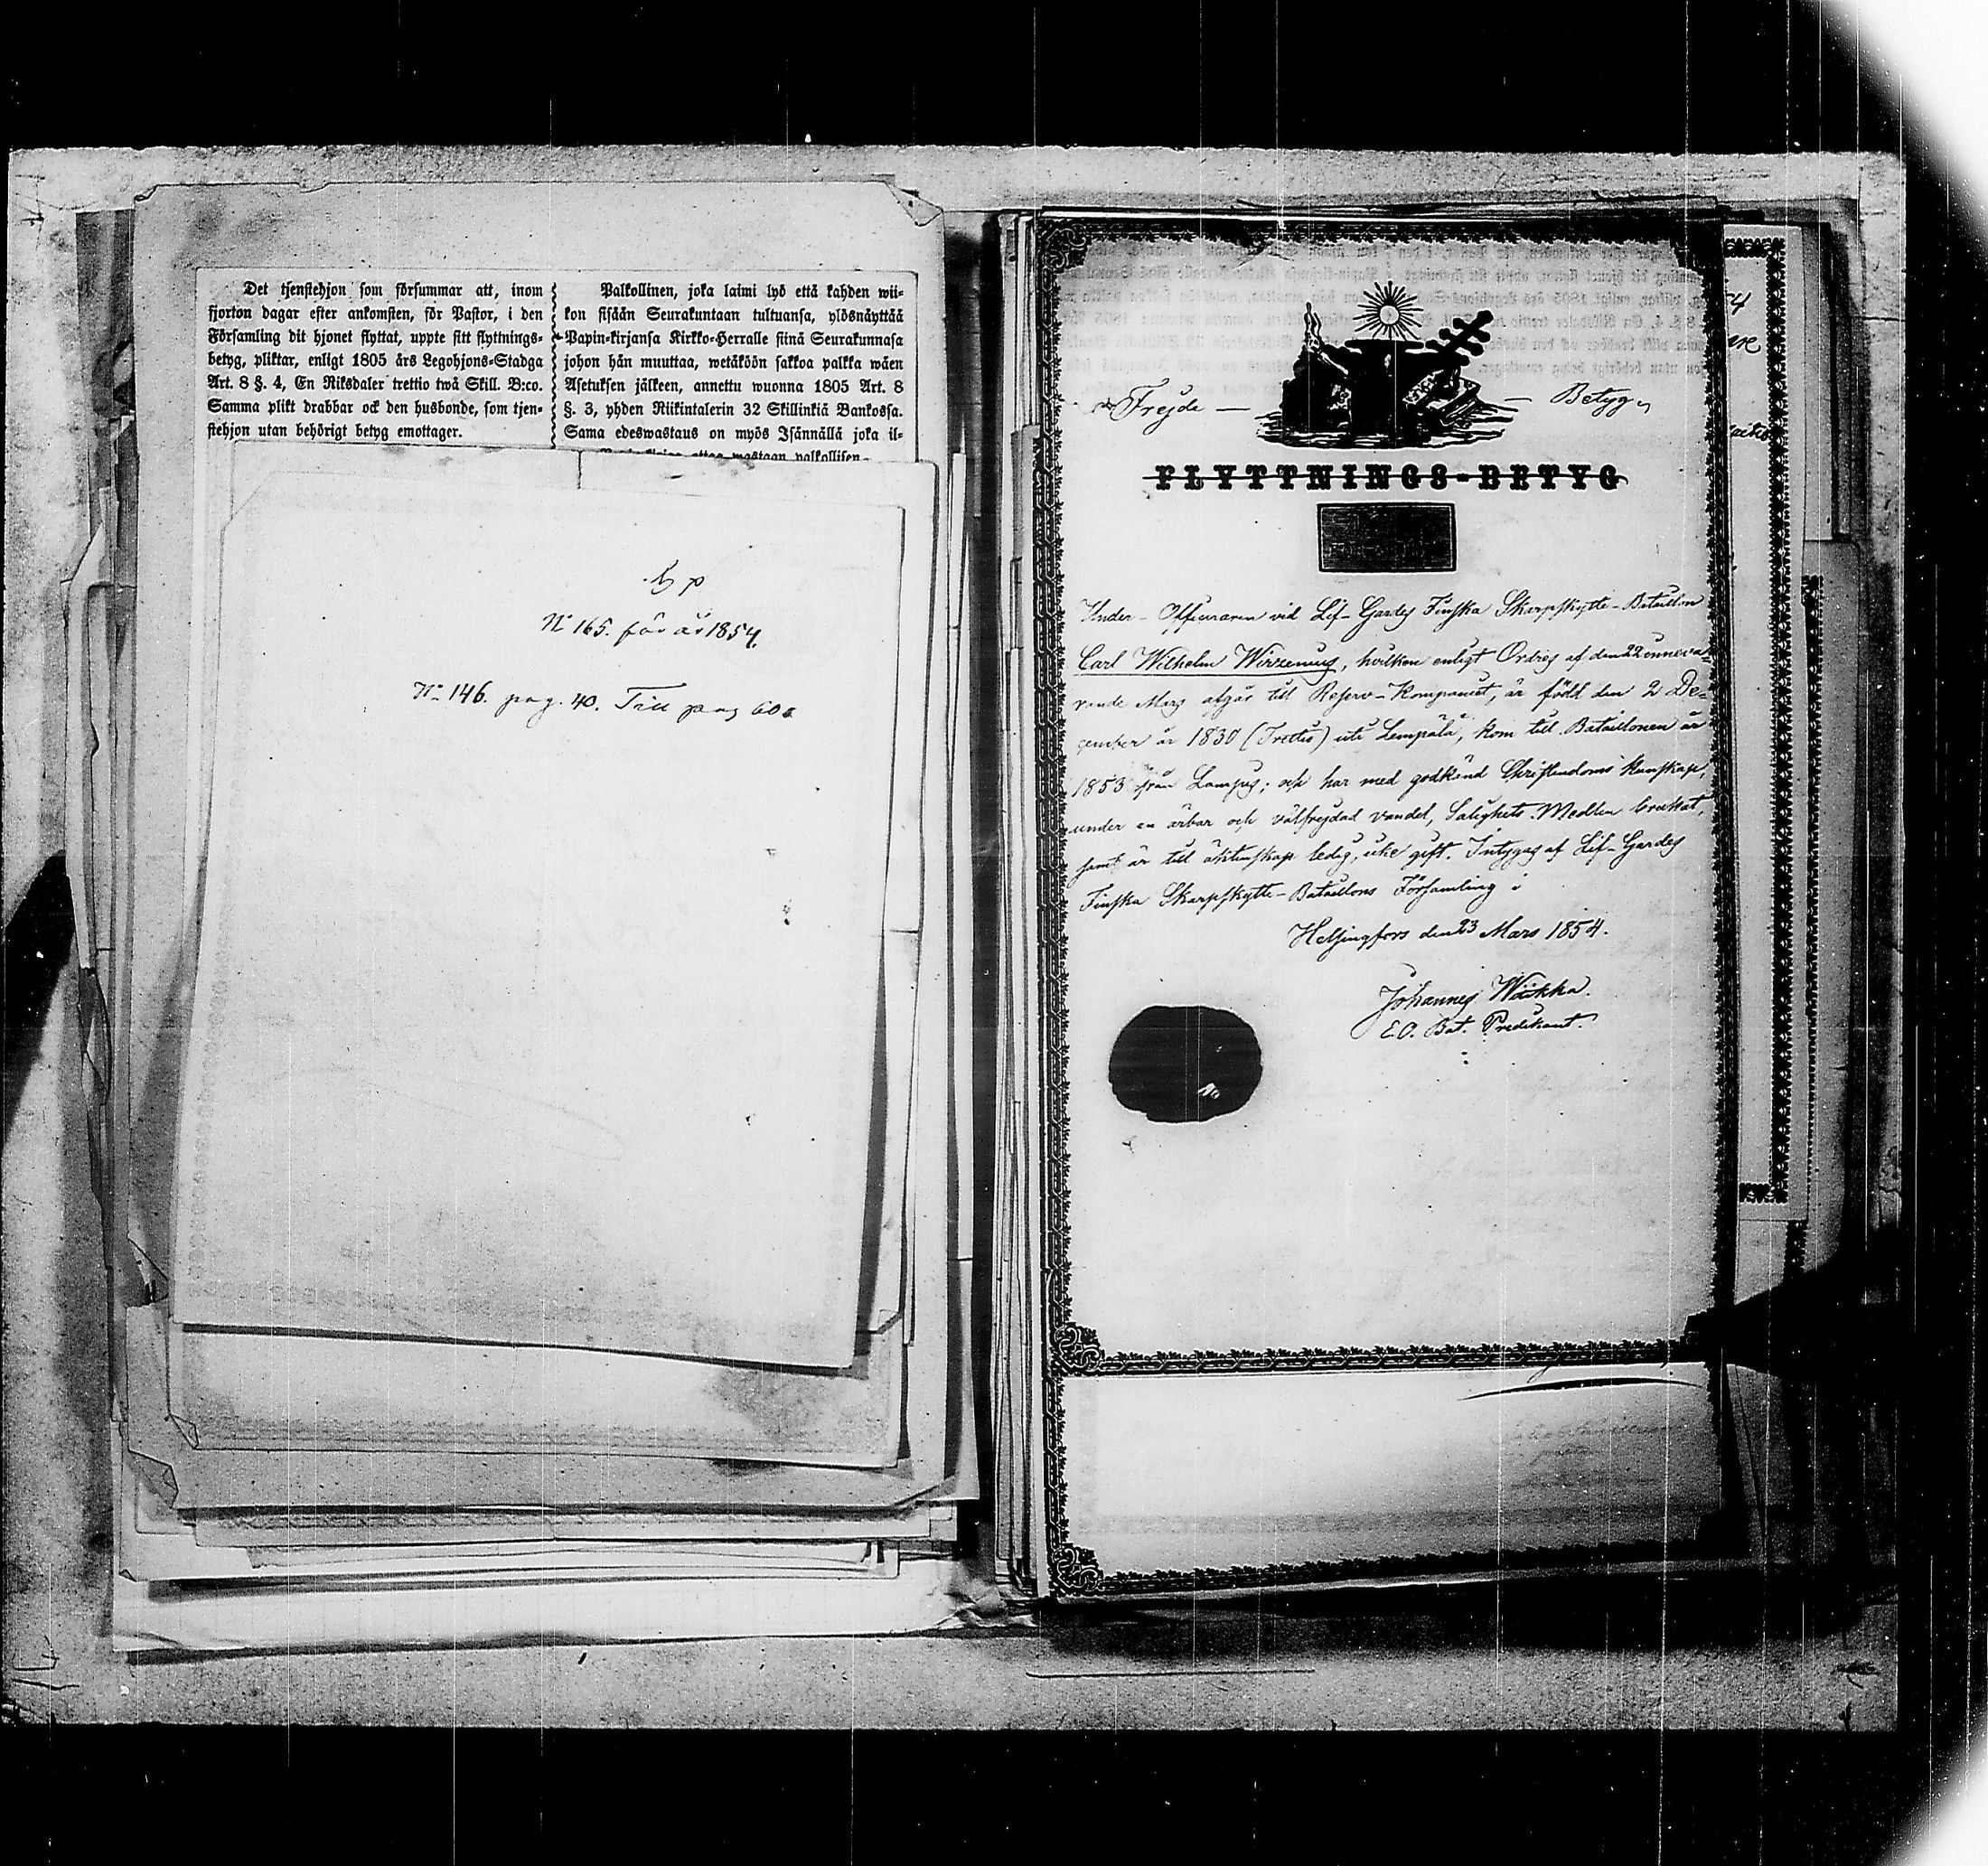 Det tjenstehjon som försummar att, inom
fjorton dagar efter ankomsten, för Pastor, i den
Församling dit hjonet flyttat, uppte sitt flyttnings-
betyg, pliktar, enligt 1805 års Legohjons-Stadga
Art. 8 §. 4, En Riksdaler trettio twå Skill. B:co.
Samma plikt drabbar ock den husbonde, som tjen-
stehjon utan behörigt betyg emottager.
Palkollinen, joka laimi lyö että kahden wii-
kon sisään Seurakuntaan tultuansa, ylösnäyttää
Papin-kirjansa Kirkko-Herralle siinä Seurakunnasa
johon hän muuttaa, wetäköön sakkoa palkka wäen
Asetuksen jälkeen, annettu wuonna 1805 Art. 8
§. 3, yhden Riikintalerin 32 Skillinkiä Bankossa.
Sama edeswastaus on myös Isännällä joka il-
ottaa wastaan palkollisen
N:o 165. för år 1854.
N:o 146. pag. 40. Till pag 60
Frejde — — Betyg
FLYTTNINGS-BETYG
Under-Officeraren vid Lif-Gardes Finska Skarpskytte-Bataillon
Carl Wilhelm Wirzenius, hvilken enligt Ordres af den 22 inneva-
rande Mars afgår till Reserv-Kompaniet, är född den 2 De-
cember år 1830 (Trettio) uti Lempälä, kom till Bataillonen år
1853 från Lampis; och har med godkänd Christendoms kunskap,
under en ärbar och välfrejdad vandel, Salighets Medlen brukat,
samt är till äktenskap ledig, icke gift. Intygas af Lif-Gardes
Finska Skarpskytte-Bataillons Församling i
Helsingfors den 23 Mars 1854.
Johannes Wäikka.
E.O. Bat. Predikant.